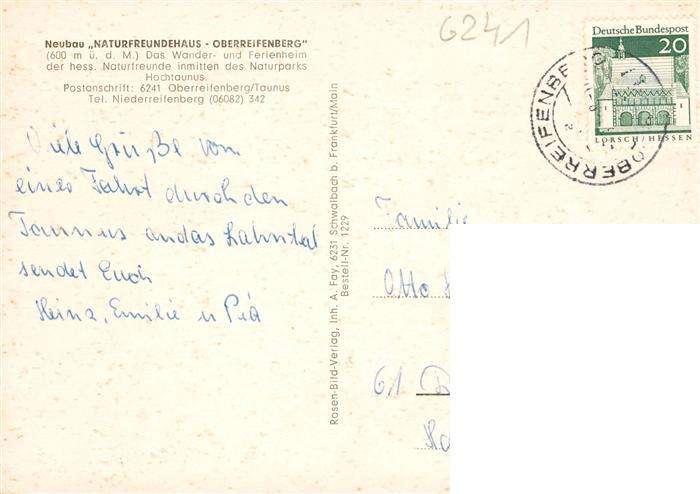 6241
Neubau „NATURFREUNDEHAUS - OBERREIFENBERG"
(600 m ü. d. M.) Das Wander- und Ferienheim
der hess. Naturfreunde inmitten des Naturparks
Hochtaunus.
Postanschrift: 6241 Oberreifenberg/Taunus
Tel. Niederreifenberg (06082) 342
Deutsche Bundespost
20
LORSCH/HESSEN
OBERREIFENBERG
Viele Grüße von
einer Fahrt durch den
Taunus an das Lahntal
sendet Euch
Heinz, Emilie u Pia
Rosen-Bild-Verlag, Inh. A. Fay, 6231 Schwalbach b. Frankfurt/Main
Bestell-Nr. 1229
Familie
Otto
61 D